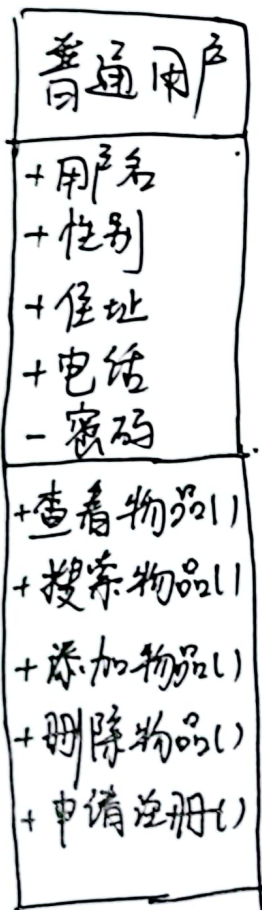 普通用户
+用户名
+性别
+住址
+电话
-密码
+查看物品()
+搜索物品()
+添加物品()
+删除物品()
+申请注册()